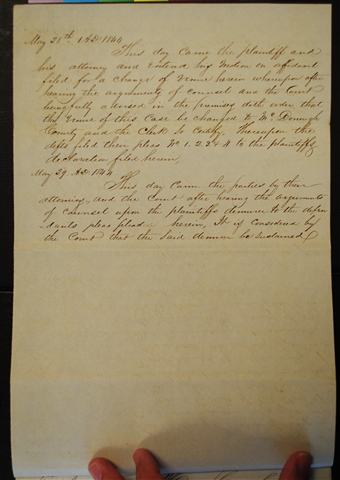 May 28th AD 1844
This day came the plaintiff and
his attorney and entered his motion on affidavit
filed for a change of venue herein whereupon after
hearing the arguments of counsel and the Court
being fully advised in the premises doth order that
the venue of this Case be changed to Mc Donough
County and the Clerk so Certify. Thereupon the
defts filed their pleas No 1. 2. 3 & 4 to the plaintiffs
declaration filed herein,
May 29 AD 1844
This day came the parties by their
attornies, and the Court after hearing the arguments
of counsel upon the plaintiffs demurer to the defen
dants pleas plead herein, It is considered by
the Court that the said demurer be sustained